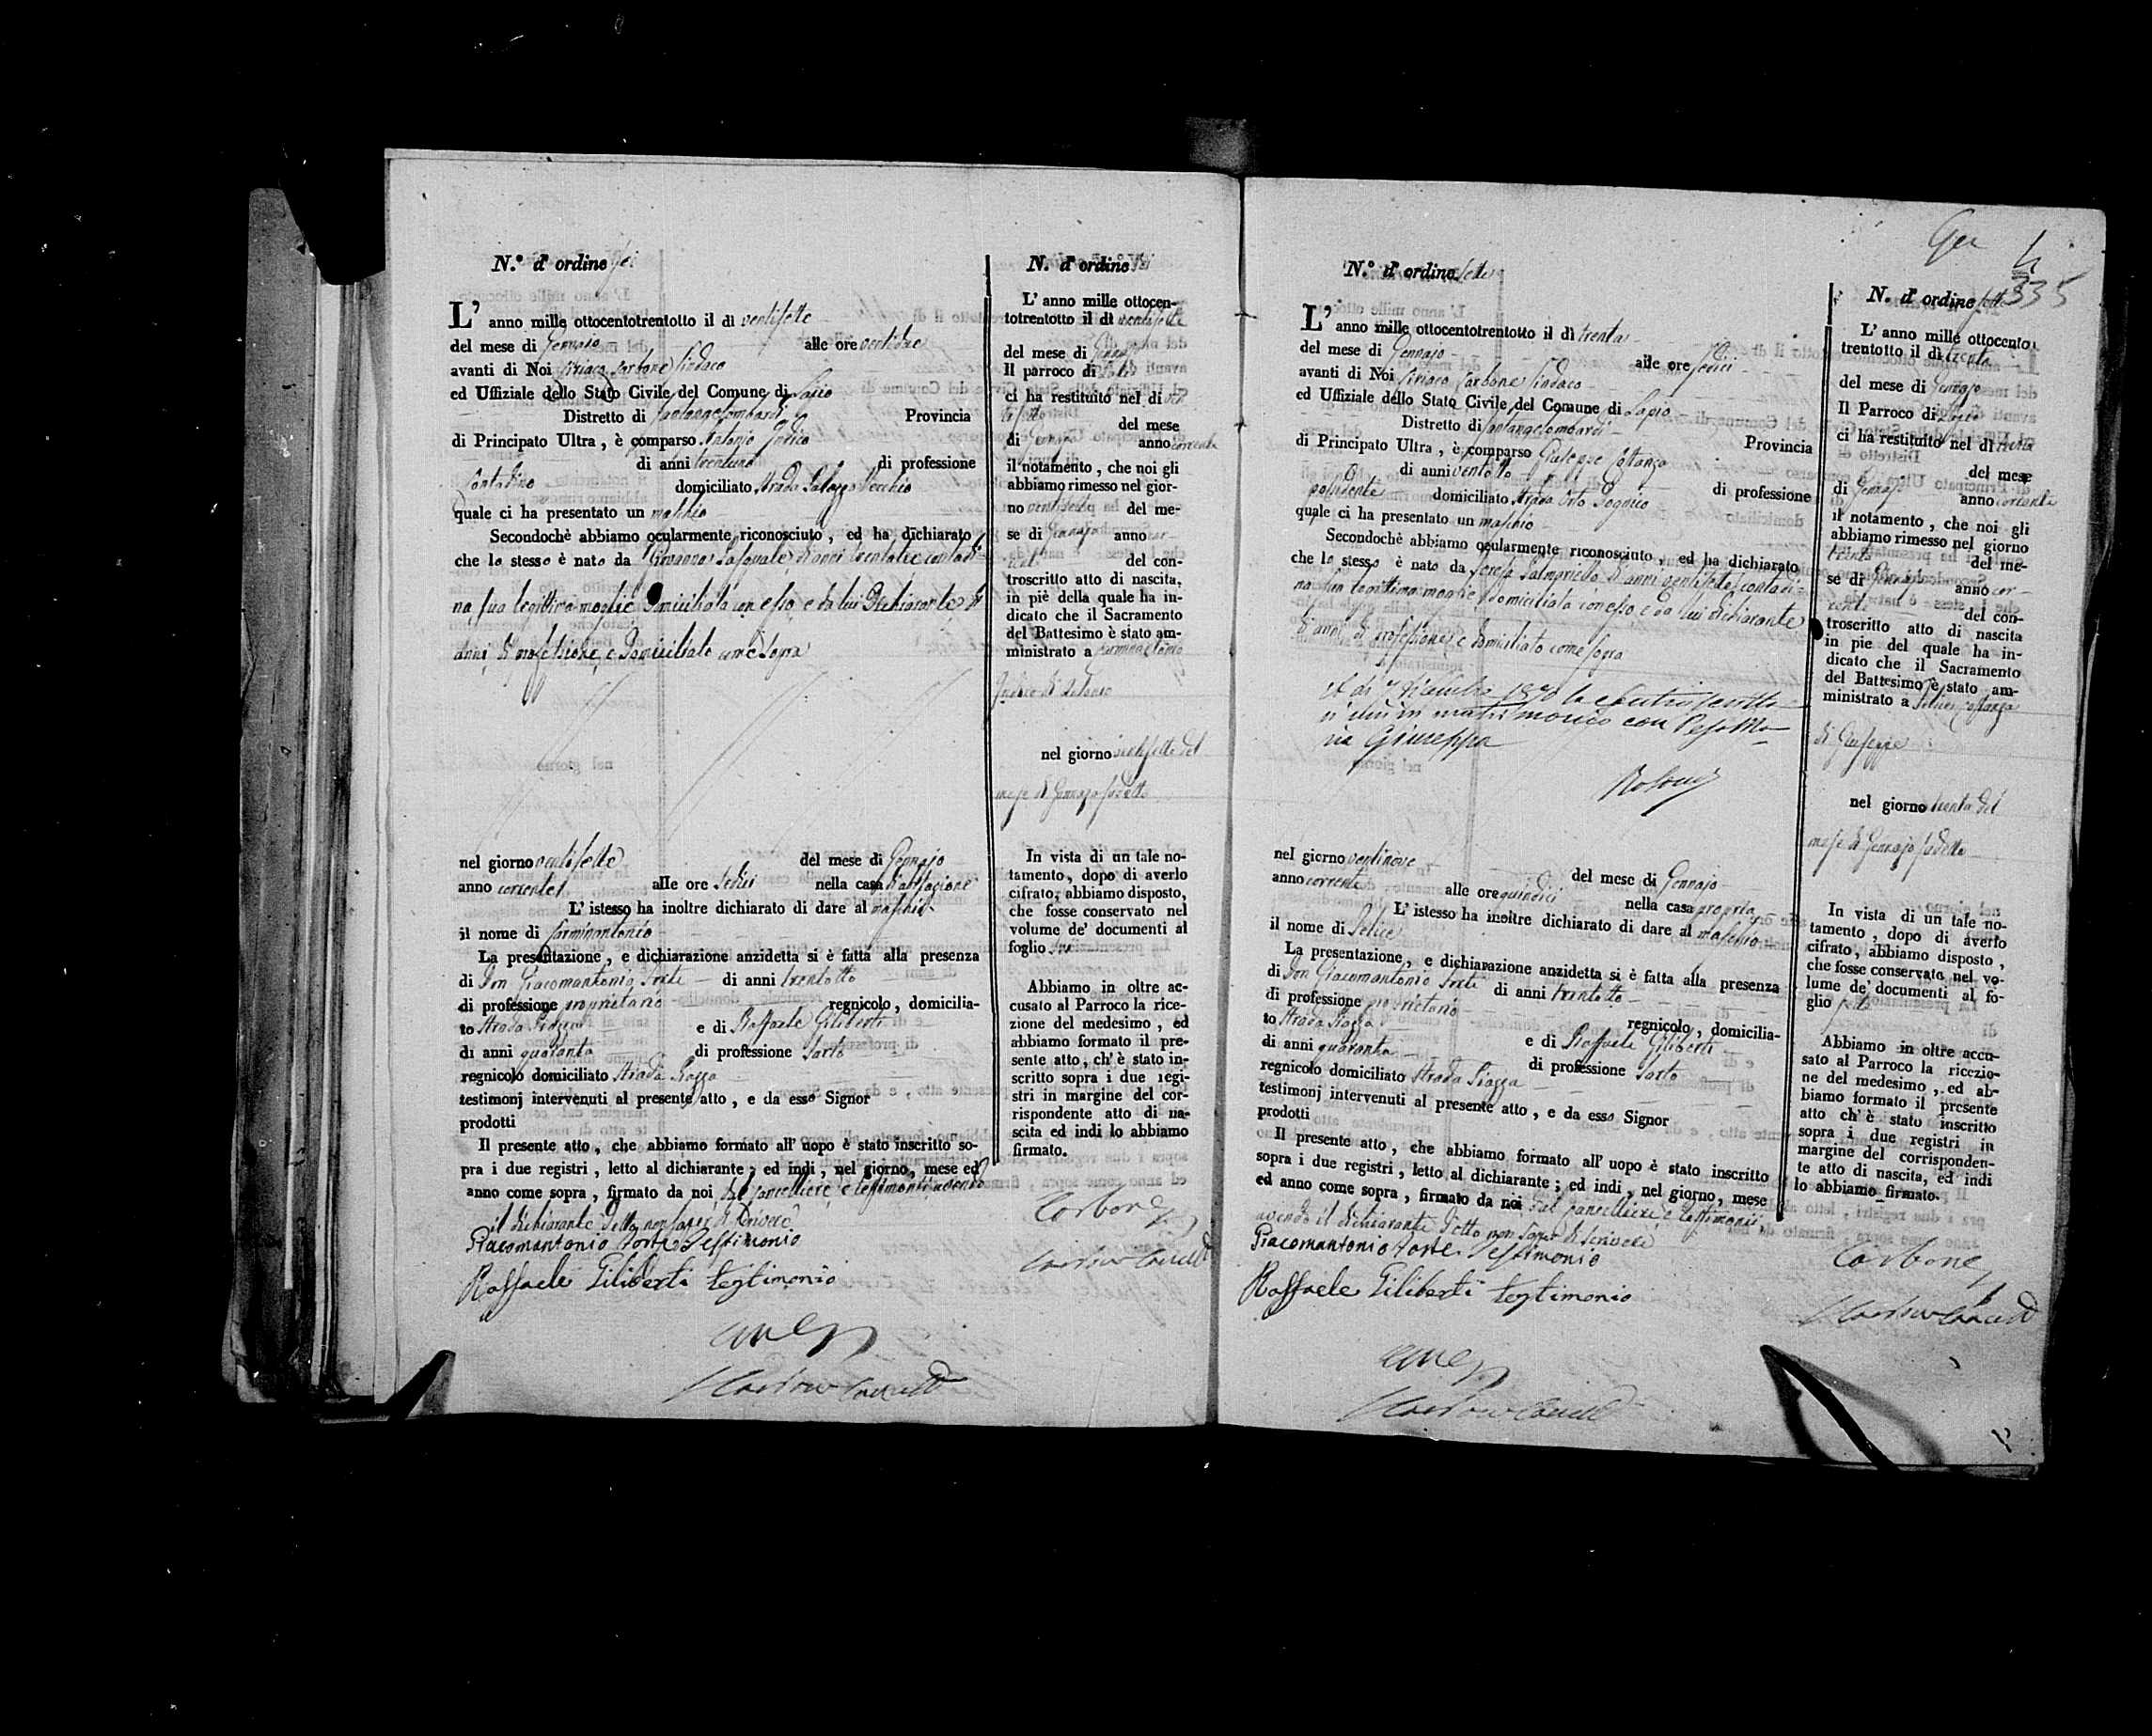 N.° d' ordine sei
L' anno mille ottocentotrentotto il dì ventisette
del mese di Gennajo alle ore ventidue
avanti di Noi Ciriaco Carbone Sindaco
ed Uffiziale dello Stato Civile del Comune di Lapio
Distretto di Santangelombardi Provincia
di Principato Ultra, è comparso Antonio
di anni trentuno di professione
Contadino domiciliato Strada Palazzo Vecchio
quale ci ha presentato un maschio
Secondochè abbiamo ocularmente riconosciuto, ed ha dichiarato
che lo stesso è nato da Giovanna Pasquale di anni trentatre contadi-
na sua legittima moglie domiciliata con esso e da lui Dichiarante di
anni di professione, e Domiciliato come sopra
nel giorno ventisette del mese di Gennajo
anno corrente alle ore sedici nella casa
L' istesso ha inoltre dichiarato di dare al maschio
il nome di Carminantonio
La presentazione, e dichiarazione anzidetta si è fatta alla presenza
di Don Giacomantonio Forte di anni trentotto
di professione proprietario regnicolo, domicilia-
to Strada Piazza e di Raffaele Giliberti
di anni quaranta di professione Sarto
regnicolo domiciliato Strada Piazza
testimonj intervenuti al presente atto, e da esso Signor
prodotti
Il presente atto, che abbiamo formato all' uopo è stato inscritto so-
pra i due registri, letto al dichiarante; ed indi, nel giorno, mese ed
anno come sopra, firmato da noi dal Cancelliere, e testimonii avendo
il dichiarante detto non saper di scrivere
Giacomantonio Forte Testimonio
Raffaele Giliberti testimonio
N. d' ordine sei
L' anno mille ottocen-
totrentotto il dì ventisette
del mese di Gennajo
Il parroco di Lapio
ci ha restituito nel dì ven
tisette del mese
di Gennajo anno corrente
il notamento, che noi gli
abbiamo rimesso nel gior-
no ventisette del me-
se di Gennajo anno cor-
rente del con-
troscritto atto di nascita,
in piè della quale ha in-
dicato che il Sacramento
del Battesimo è stato am-
ministrato a Carminantonio
di Antonio
nel giorno ventisette del
mese di Gennajo sudetto
In vista di un tale no-
tamento, dopo di averlo
cifrato, abbiamo disposto,
che fosse conservato nel
volume de' documenti al
foglio sei
Abbiamo in oltre ac-
cusato al Parroco la rice-
zione del medesimo, ed
abbiamo formato il pre-
sente atto, ch' è stato in-
scritto sopra i due regi-
stri in margine del cor-
rispondente atto di na-
scita ed indi lo abbiamo
firmato.
Carbone
335
N.° d' ordine sette
L' anno mille ottocentotrentotto il dì trenta
del mese di Gennajo alle ore sedici
avanti di Noi Ciriaco Carbone Sindaco
ed Uffiziale dello Stato Civile del Comune di Lapio
Distretto di Santangelombardi Provincia
di Principato Ultra, è comparso Giuseppe Costanzo
di anni ventotto di professione
possidente domiciliato Strada Orto
quale ci ha presentato un maschio
Secondochè abbiamo ocularmente riconosciuto, ed ha dichiarato
che lo stesso è nato da Teresa Palmariello di anni ventisette contadi-
na sua legittima moglie domiciliata con esso e da lui dichiarante
di anni di professione, e domiciliato come sopra
A dì 7 Dicembre 1870 lo controscritto
si unì in matrimonio con Ma-
ria Giuseppa
nel giorno ventinove del mese di Gennajo
anno corrente alle ore quindici nella casa propria
L' istesso ha inoltre dichiarato di dare al maschio
il nome di Felice
La presentazione, e dichiarazione anzidetta si è fatta alla presenza
di Don Giacomantonio Forte di anni trentotto
di professione proprietario regnicolo, domicilia-
to Strada Piazza e di Raffaele Giliberti
di anni quaranta di professione Sarto
regnicolo domiciliato Strada Piazza
testimonj intervenuti al presente atto, e da esso Signor
prodotti
Il presente atto, che abbiamo formato all' uopo è stato inscritto
sopra i due registri, letto al dichiarante; ed indi, nel giorno, mese
ed anno come sopra, firmato da noi dal Cancelliere, e testimonii,
avendo il dichiarante detto non saper di scrivere
Giacomantonio Forte Testimonio
Raffaele Giliberti testimonio
N. d' ordine sette
L' anno mille ottocento
trentotto il dì trenta
del mese di Gennajo
Il Parroco di Lapio
ci ha restituito nel dì trenta
del mese
di Gennajo anno corrente
il notamento, che noi gli
abbiamo rimesso nel giorno
trenta del me-
se di Gennajo anno cor-
rente del con-
troscritto atto di nascita
in pie del quale ha in-
dicato che il Sacramento
del Battesimo è stato am-
ministrato a Felice Costanzo
di Giuseppe
nel giorno trenta del
mese di Gennajo sudetto
In vista di un tale no-
tamento, dopo di averlo
cifrato, abbiamo disposto,
che fosse conservato nel vo-
lume de' documenti al fo-
glio sette
Abbiamo in oltre accu-
sato al Parroco la ricezio-
ne del medesimo, ed ab-
biamo formato il presente
atto ch' è stato inscritto
sopra i due registri in
margine del corrisponden-
te atto di nascita, ed indi
lo abbiamo firmato.
Carbone